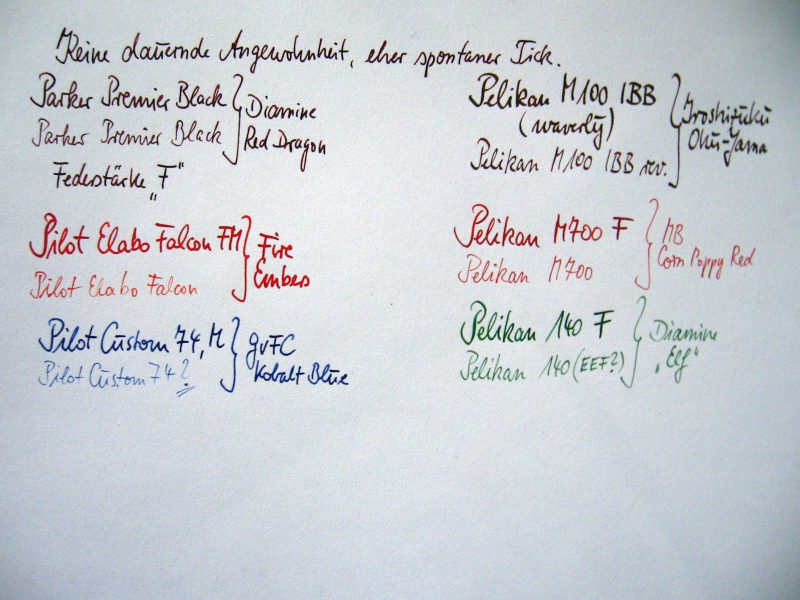 Keine dauernde Angewohnheit, eher spontaner Tick.
Parker Premier Black
Parker Premier Black
Diamine
Red Dragon
Federstärke „F“
Pilot Elabo Falcon FM
Pilot Elabo Falcon
Fire
Embers
Pilot Custom 74, M
Pilot Custom 74?
GvFC
Kobalt Blue
Pelikan M100 IBB
(waverly)
Pelikan M100 IBB rev.
Iroshizuku
Oku-Yama
Pelikan M700 F
Pelikan M700
MB
Corn Poppy Red
Pelikan 140 F
Pelikan 140 (EEF?)
Diamine
„Elf“